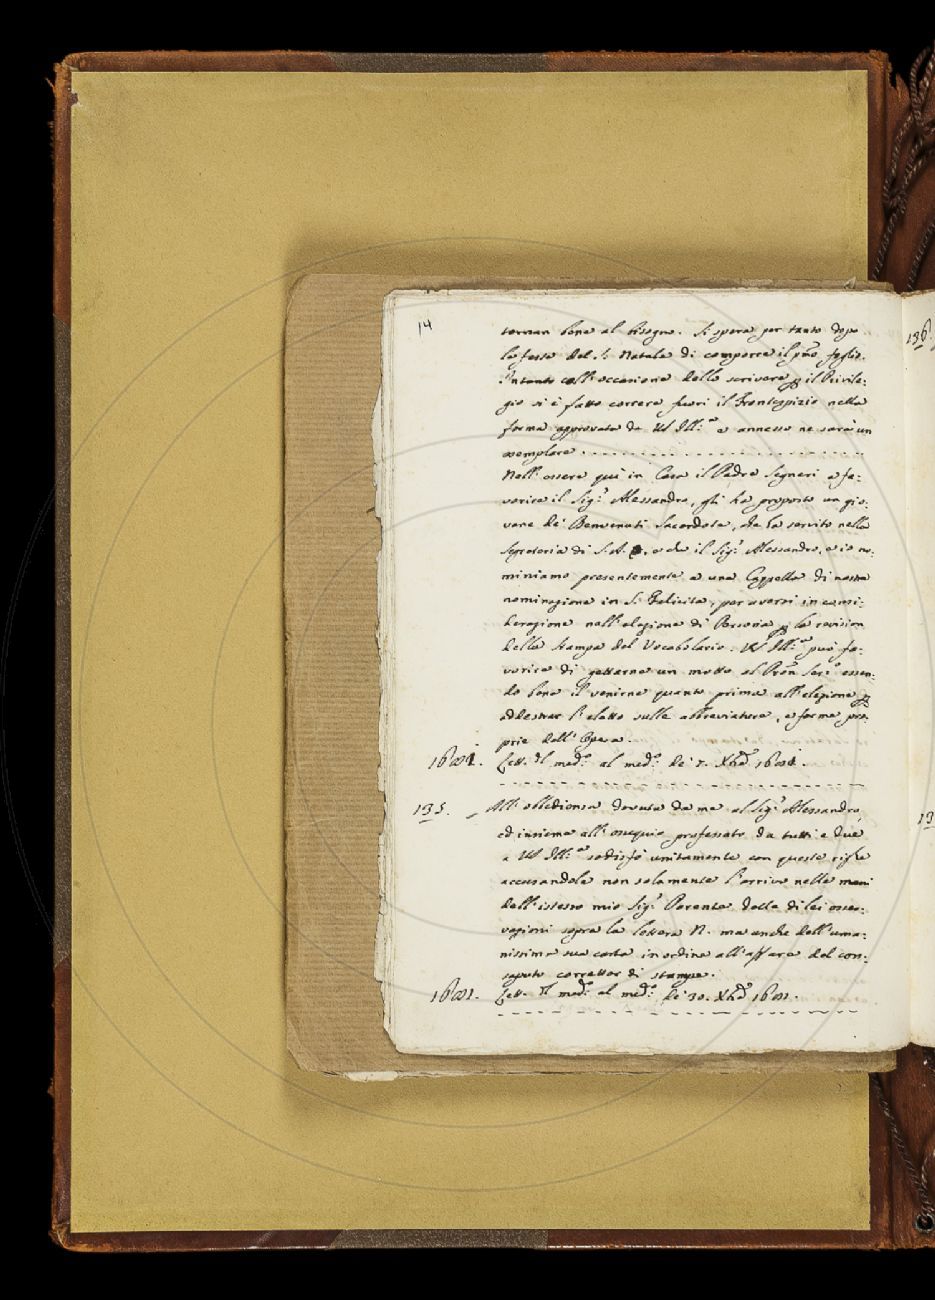 14
tornan bene al bisogno. Si spera per tanto dopo
la festa del S. Natale di comporre il pmo foglio.
Intanto coll'occasione dello scrivere il Privile:
gio si è fatto correre fuori il Frontespizio nella
forma approvata da VS Ill:a e annesso ne sarà un
esemplare . - - - - - - - - - - - - - - -
Nell'essere qui in Casa il Padre Segneri a fa:
vorire il Sig.r Alessandro, gli ha proposto un gio:
vane de' Benvenuti Sacerdote, che ha servito nella
Segreteria di S.A. e che il Sig.r Alessandro, e io no:
miniamo presentemente a una Cappella di nostra
nominazione in S. Felicita, per avervi in consi:
derazione nell'elezione di Persona p la revision
della stampa del Vocabolario. VS Ill:a può fa:
vorire di gettarne un motto al Pron Ser.o essen:
do bene il venirne quanto prima all'elezione p
addestrar l'eletto sulle abbreviature, e forme pro:
prie dell'Opera.
1691. Lett. Il med.o al med.o de' 7. Xbre 1691.
135. All'obbedienza dovuta da me al Sig.r Alessandro,
ed insieme all'ossequio professato da tutti e due
a VS Ill:a sodisfò unitamente con queste righe
accusandole non solamente l'arrivo nelle mani
dell'istesso mio Sig.r Parente delle di lei osser:
vazioni sopra la lettera N. ma anche dell'uma:
nissima sua carta in ordine all'affare del con:
saputo correttor di stampe.
1691. Lett. Il med.o al med.o de' 30. Xbre 1691.
136.
13